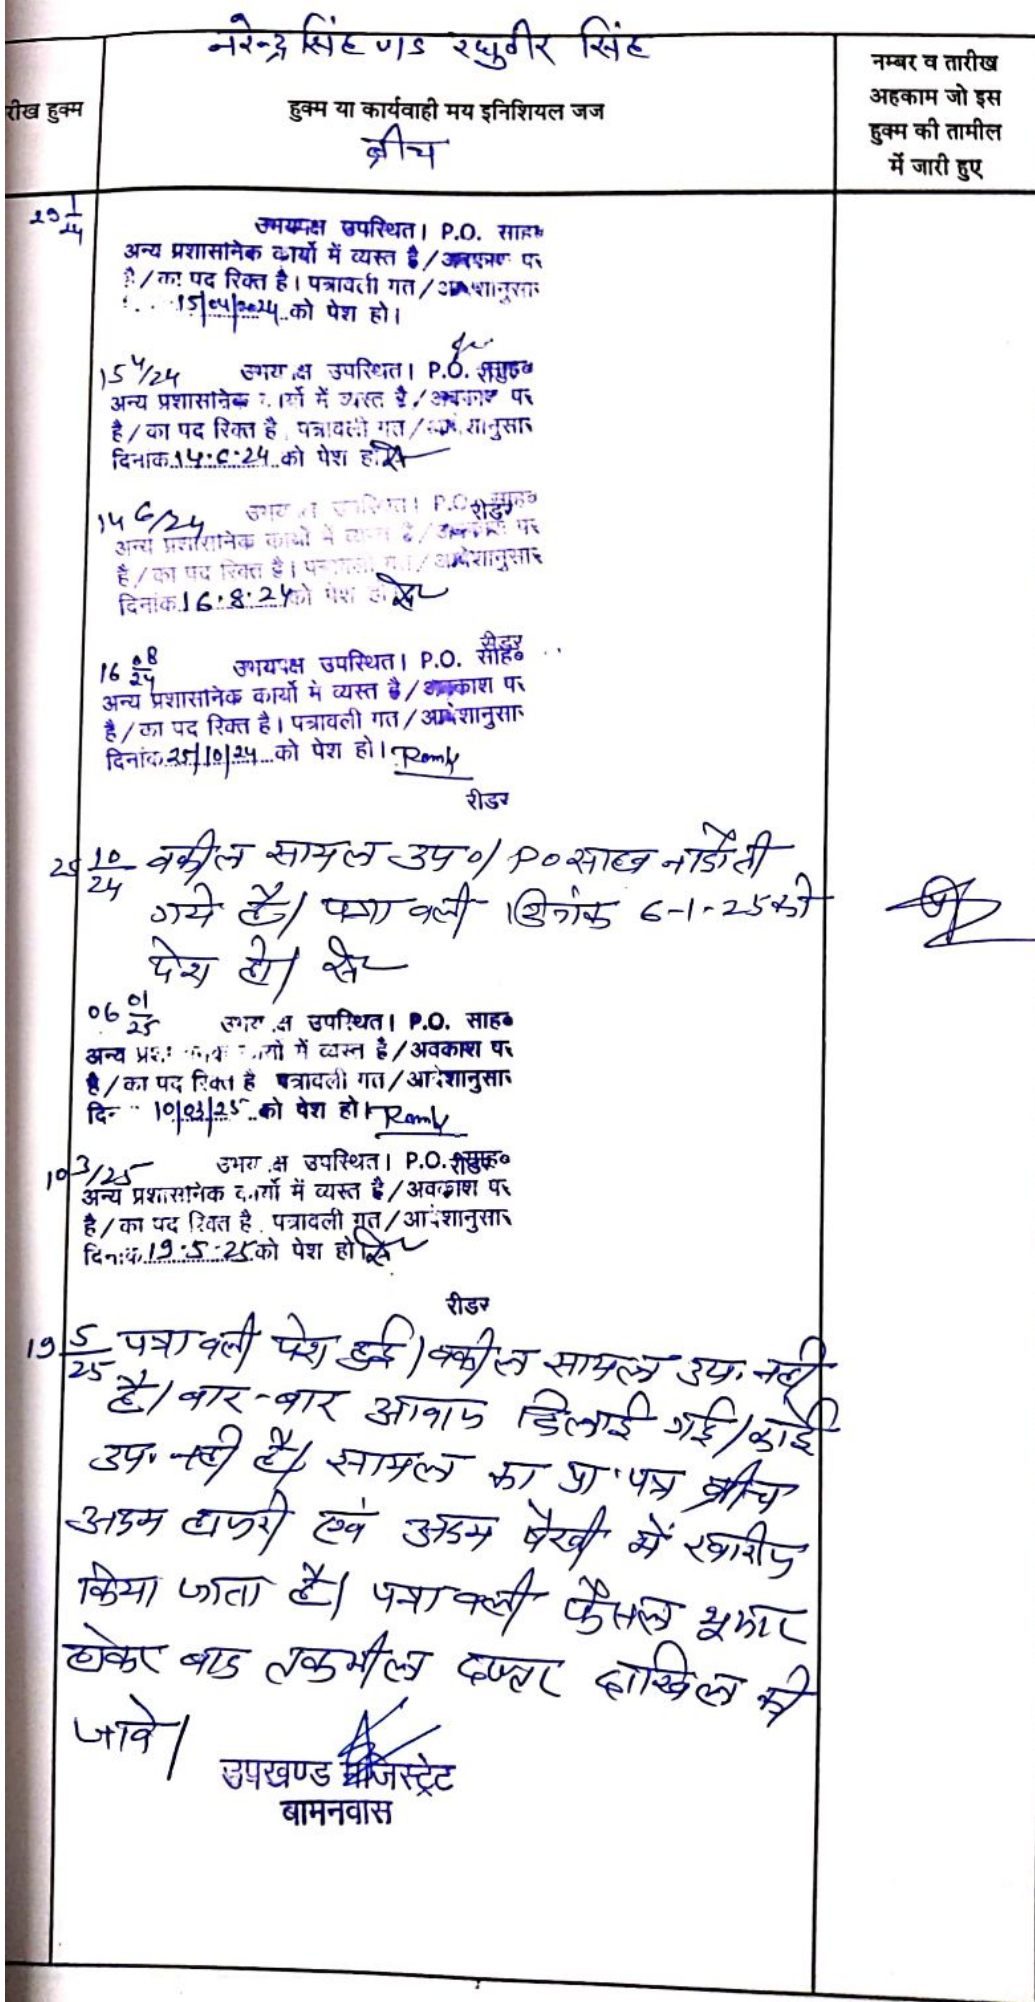 नरेन्द्र सिंह v/s रघुवीर सिंह
रीख हुक्म
हुक्म या कार्यवाही मय इनिशियल जज
ब्रीच
नम्बर व तारीख
अहकाम जो इस
हुक्म की तामील
में जारी हुए
29 1/24
उभयपक्ष उपस्थित। P.O. साहब
अन्य प्रशासनिक कार्यो में व्यस्त है/अवकाश पर
है/का पद रिक्त है। पत्रावली गत/आदेशानुसार
15/04/2024 को पेश हो।
15 4/24 उभयपक्ष उपस्थित। P.O. साहब
अन्य प्रशासनिक कार्यो में व्यस्त है/अवकाश पर
है/का पद रिक्त है पत्रावली गत/आदेशानुसार
दिनांक 14.6.24 को पेश हो
रीडर
14 6/24 उभयपक्ष उपस्थित। P.O. साहब
अन्य प्रशासनिक कार्यो में व्यस्त है/अवकाश पर
है/का पद रिक्त है। पत्रावली गत/आदेशानुसार
दिनांक 16.8.24 को पेश हो
रीडर
16 08/24 उभयपक्ष उपस्थित। P.O. साहब
अन्य प्रशासनिक कार्यो में व्यस्त है/अवकाश पर
है/का पद रिक्त है। पत्रावली गत/आदेशानुसार
दिनांक 25/10/24 को पेश हो।
रीडर
25 10/24 वकील सायल उप०। P० साहब नादौती
गये है। पत्रावली दिनांक 6-1-25 को
पेश हो।
06 01/25 उभयपक्ष उपस्थित। P.O. साहब
अन्य प्रशासनिक कार्यो में व्यस्त है/अवकाश पर
है/का पद रिक्त है पत्रावली गत/आदेशानुसार
दि 10/03/25 को पेश हो।
रीडर
10 3/25 उभयपक्ष उपस्थित। P.O. साहब
अन्य प्रशासनिक कार्यो में व्यस्त है/अवकाश पर
है/का पद रिक्त है पत्रावली गत/आदेशानुसार
दिनांक 19.5.25 को पेश हो
रीडर
19 5/25 पत्रावली पेश हुई। वकील सायल उप. नही
है। बार-बार आवाज दिलाई गई। कोई
उप. नही है। सायल का प्रा. पत्र ब्रीच
अदम हाजरी एवं अदम पैरवी में खारीज
किया जाता है। पत्रावली फैसल शुमार
होकर बाद तकमील दफ्तर दाखिल की
जावे।
उपखण्ड मजिस्ट्रेट
बामनवास